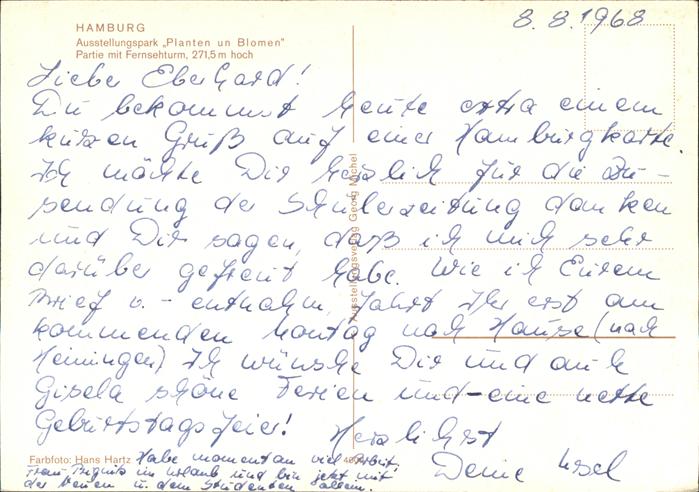 8.8.1968
HAMBURG
Ausstellungspark „Planten un Blomen"
Partie mit Fernsehturm, 271,5 m hoch
Lieber Eberhard!
Du bekommst heute extra einen
kurzen Gruß auf einer Hamburgkarte.
Ich möchte Dir herzlich für die Zu-
sendung der Schülerzeitung danken
und Dir sagen, daß ich mich sehr
darüber gefreut habe. Wie ich Eurem
Brief entnahm, fahrt Ihr erst am
kommenden Montag nach Hause (nach
Heiningen) Ich wünsche Dir und auch
Gisela schöne Ferien und eine nette
Geburtstagsfeier!
Herzlichst
Deine Ursel
Farbfoto: Hans Hartz
Habe momentan viel Arbeit!
Frau im Urlaub und bin jetzt mit
der neuen u. dem Studenten allein.
Ausstellungsverlag Georg Michel